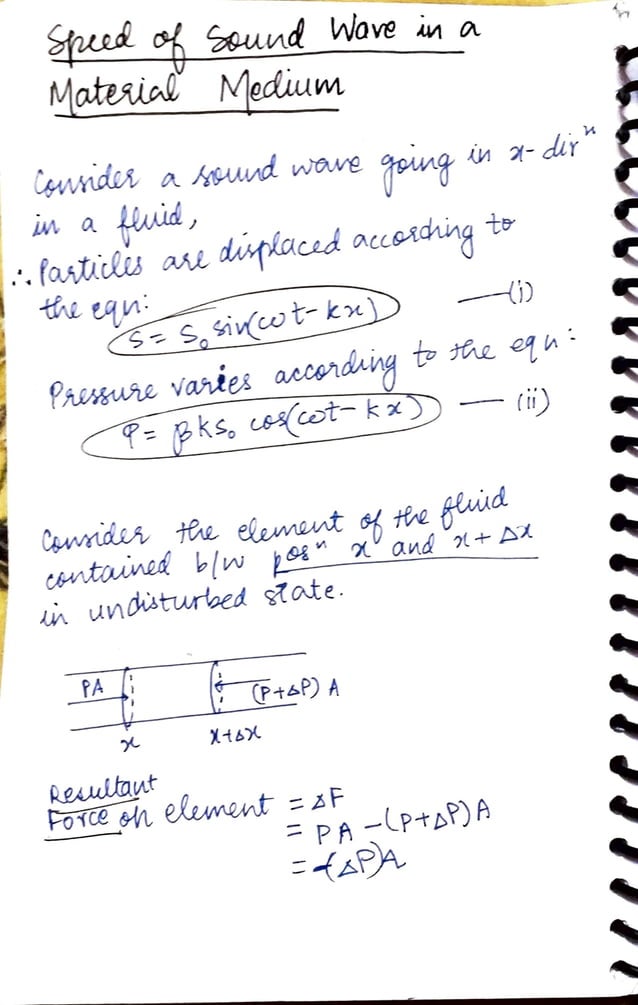 Speed of Sound Wave in a
Material Medium
Consider a sound wave going in x-dirⁿ
in a fluid,
∴ Particles are displaced according to
the eqn:
S = S₀ sin(ωt - kx) — (i)
Pressure varies according to the eqn:
P = βKS₀ cos(ωt - kx) — (ii)
Consider the element of the fluid
contained b/w posⁿ x and x + Δx
in undisturbed state.
PA (P+ΔP) A
x x+Δx
Resultant
Force on element = ΔF
= PA - (P+ΔP) A
= -(ΔP)A